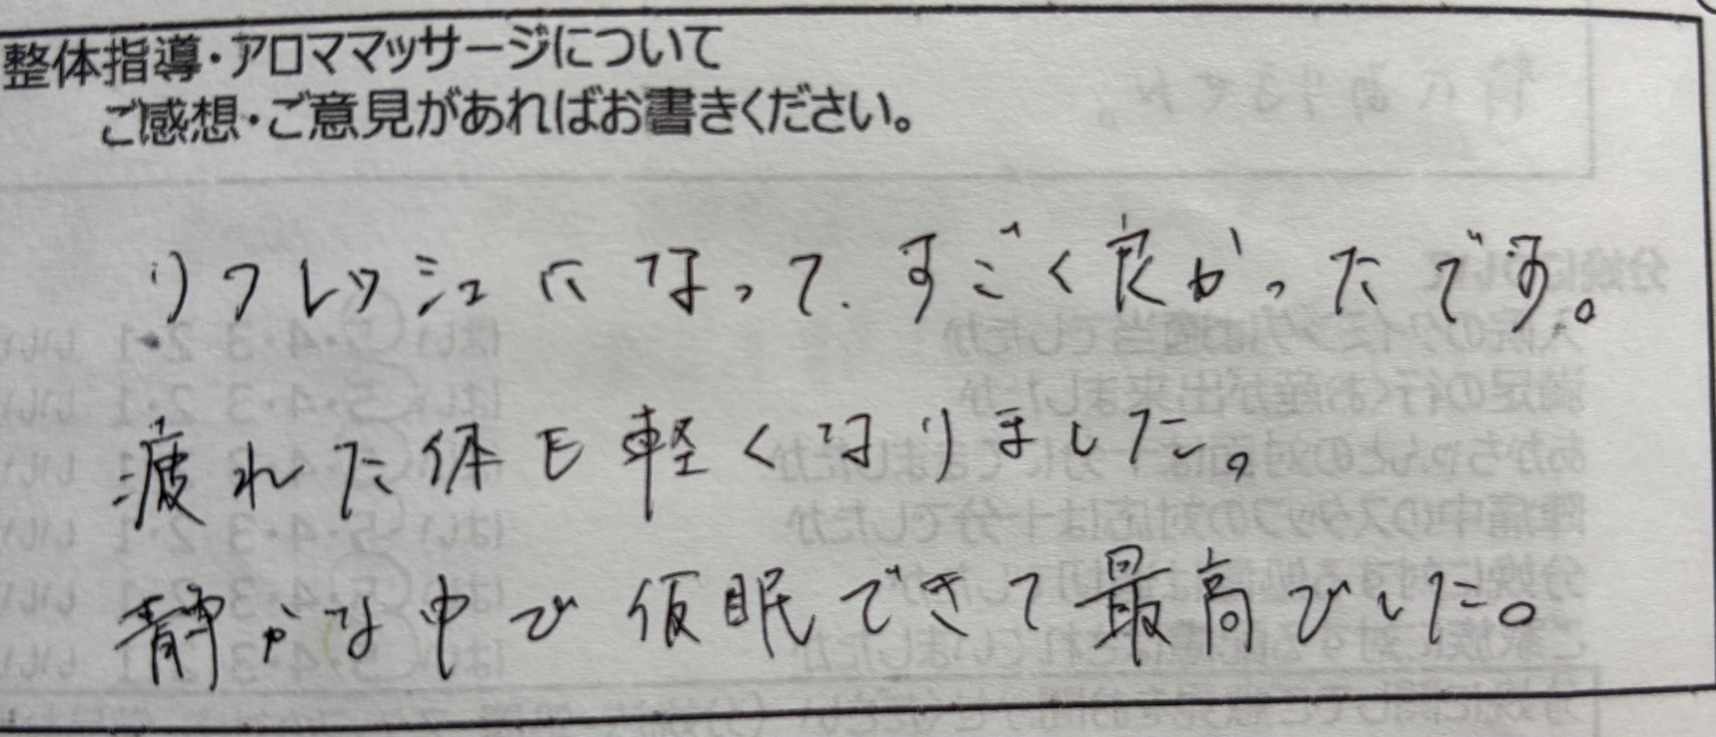 整体指導・アロママッサージについて
ご感想・ご意見があればお書きください。
リフレッシュになって、すごく良かったです。
疲れた体も軽くなりました。
静かな中で仮眠できて最高でした。